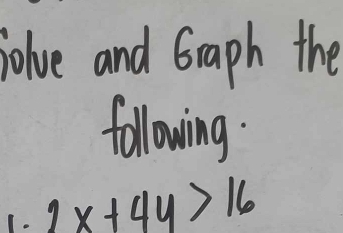 Solve and Graph the
following.
1. 2x+4y>16